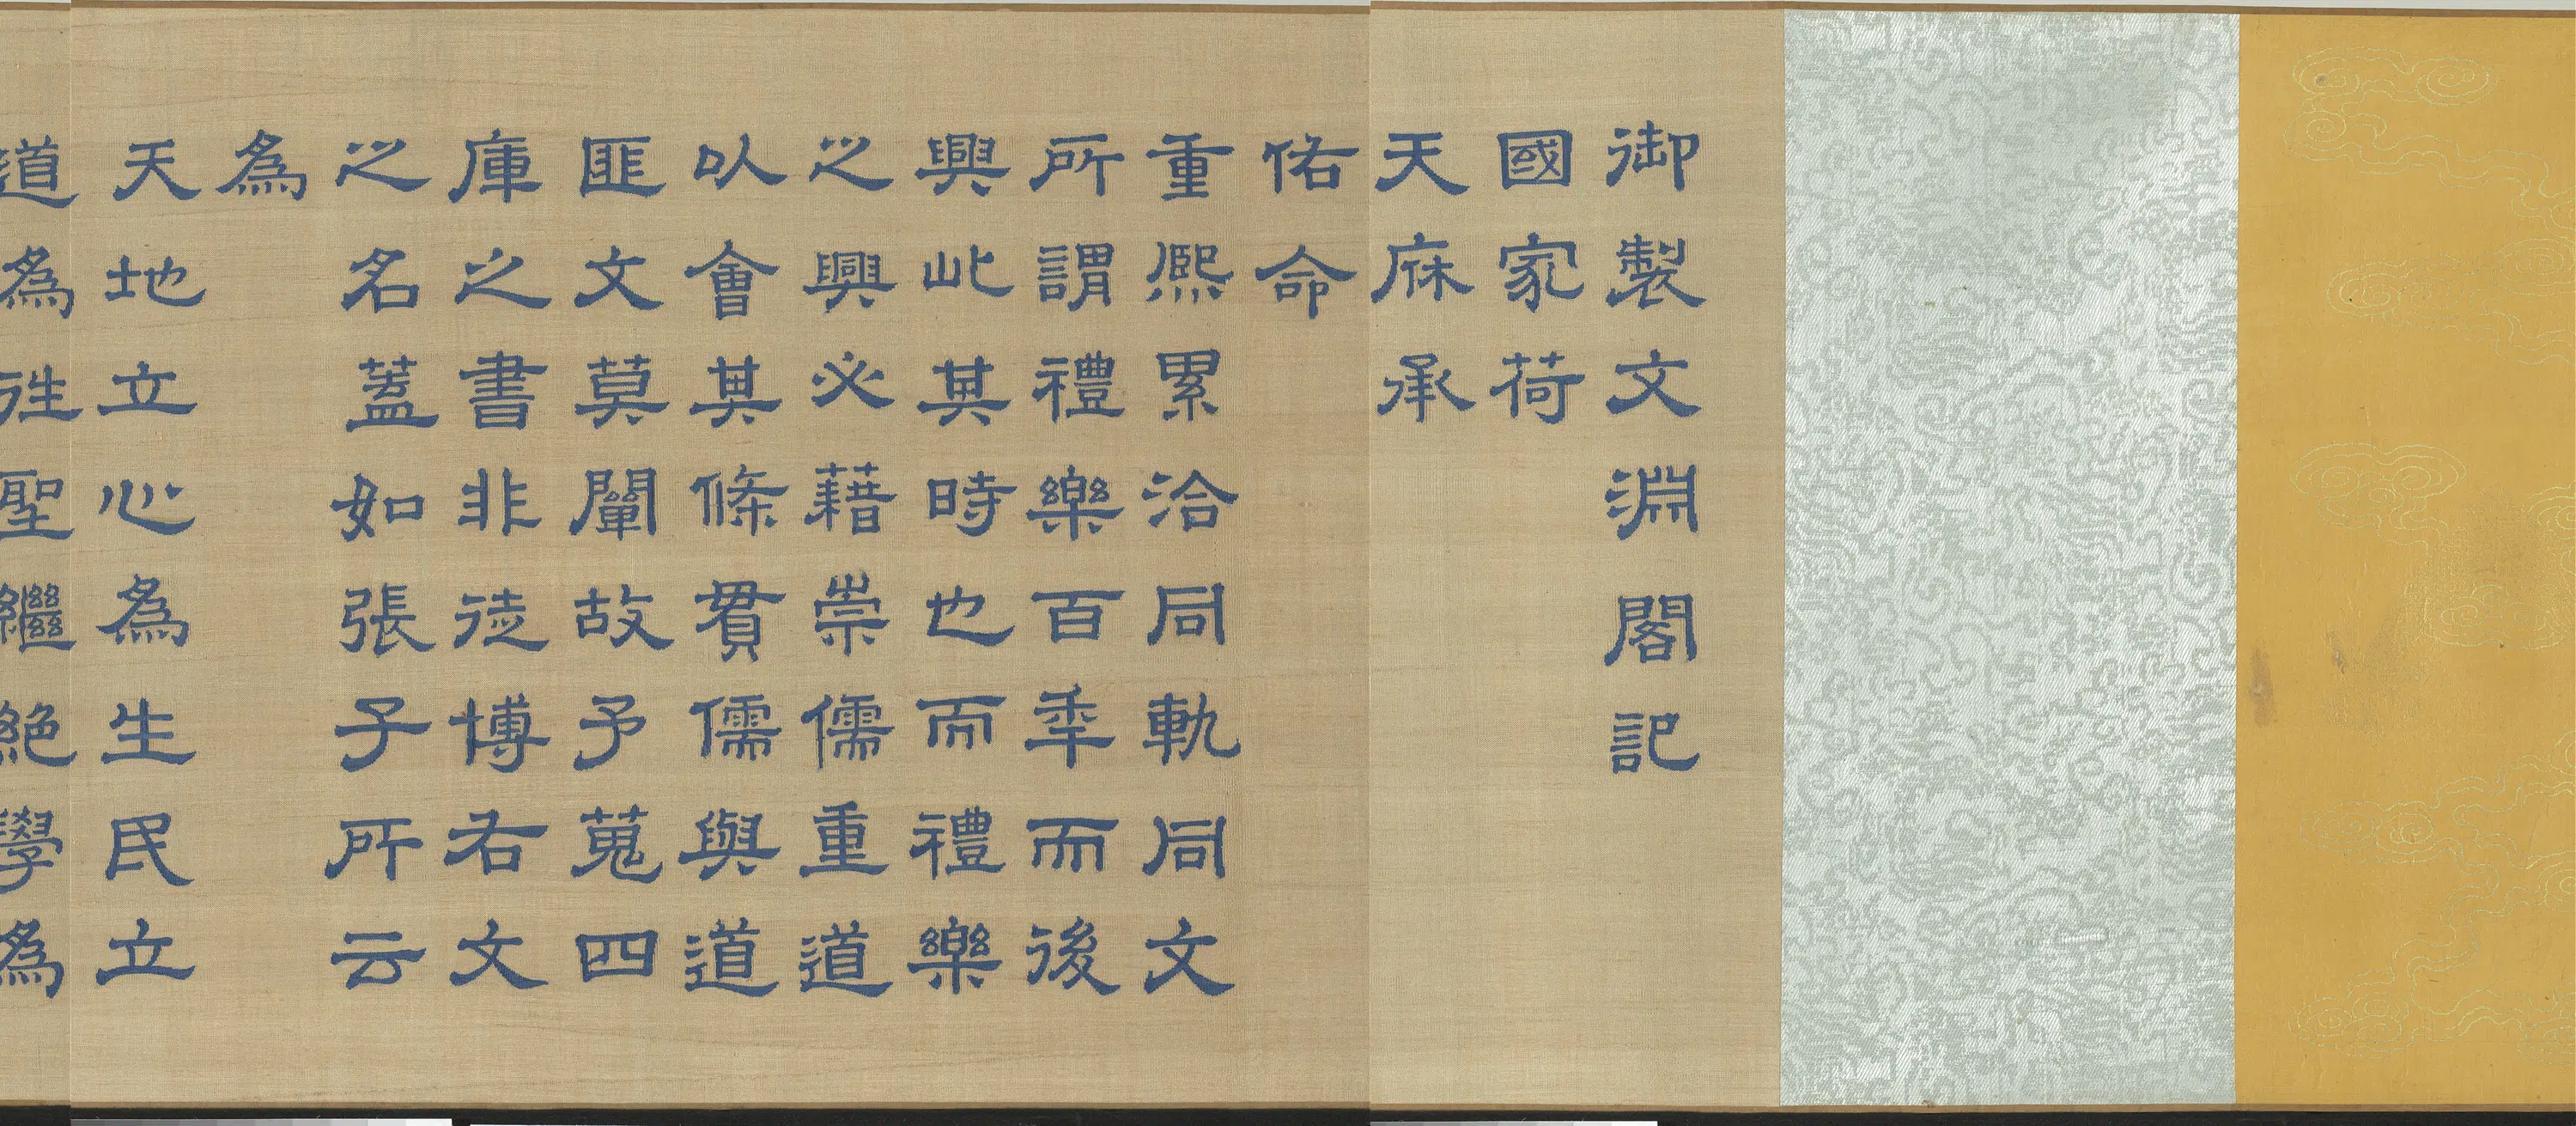 御製文淵閣記
國家荷
天庥承
佑命
重熙累洽同軌同文
所謂禮樂百年而後
興此其時也而禮樂
之興必藉崇儒重道
以會其條貫儒與道
匪文莫闡故予蒐四
庫之書非徒博右文
之名蓋如張子所云
為
天地立心為生民立
道為徃聖繼絕學為